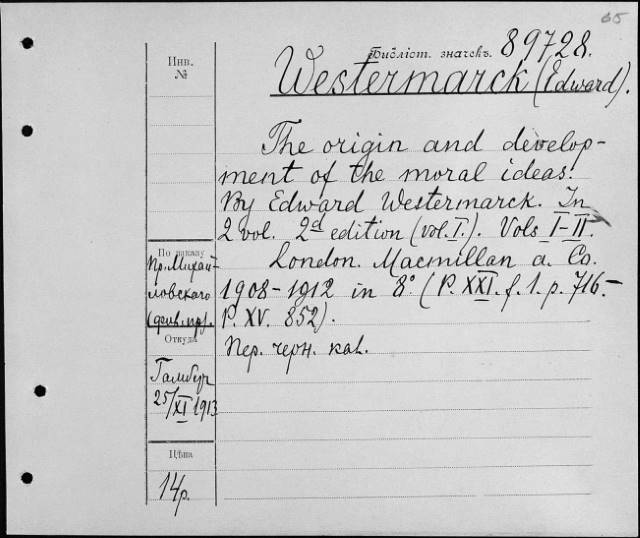 65
Библіот. значекъ. 89728.
Инв.
№
Westermarck (Edward).
The origin and develop-
ment of the moral ideas.
By Edward Westermarck. In
2 vol. 2d edition (vol. I.). Vols I-II.
London. Macmillan a. Co.
1908-1912 in 8° (P. XXI. f. 1. p. 716.-
P. XV. 852).
Пер. черн. кол.
По заказу
Пр. Михай-
ловскаго
Откуда
25/XI 1913
Цѣна
14 р.